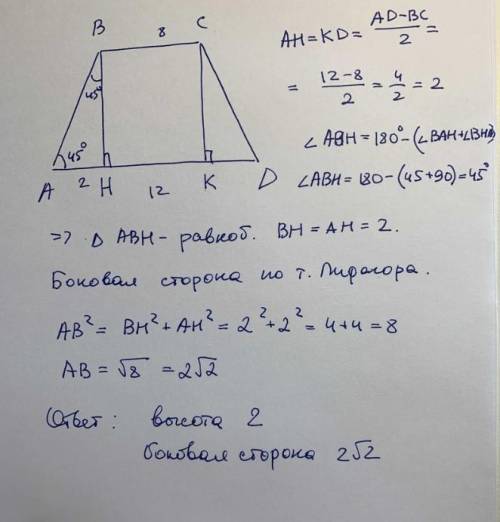 B 8 C
45°
45°
A 2 H 12 K D
AH = KD = (AD-BC)/2 =
= (12-8)/2 = 4/2 = 2
∠ABH = 180° - (∠BAH+∠BHA)
∠ABH = 180 - (45+90) = 45°
=> △ ABH - равноб. BH = AH = 2.
Боковая сторона по т. Пифагора.
AB² = BH² + AH² = 2² + 2² = 4+4 = 8
AB = √8 = 2√2
Ответ: высота 2
боковая сторона 2√2